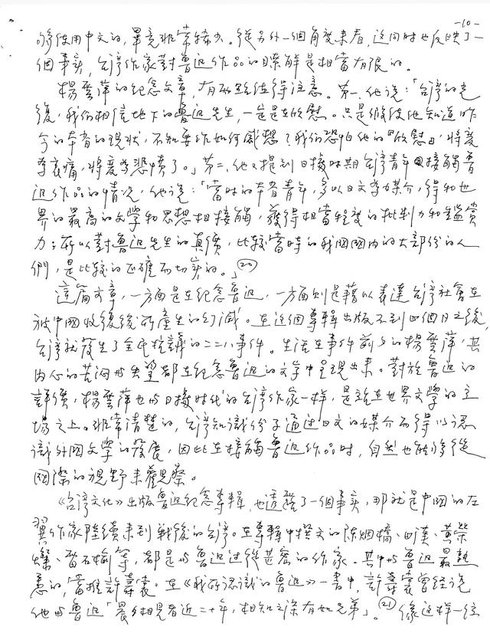 -10-
能使用中文的,畢竟非常稀少。從另外一個角度來看,這同時也反映了一
個事實,台灣作家對魯迅作品的瞭解是相當有限的。
楊雲萍的紀念文章,有兩點值得注意。第一,他說:「台灣的光
復,我們相信地下的魯迅先生,一定是在欣慰。只是假使他知道昨
今的本省的現狀,不知要作如何感想?我們恐怕他的『欣慰』,將變
為哀痛,將變為悲憤了。」第二,他又提到日據時期台灣青年接觸魯
迅作品的情況,他說:「當時的本省青年,多以日文為媒介,得和世
界的最高的文學和思想相接觸,獲得相當程度的批判力和鑑賞
力;所以對魯迅先生的真價,比較當時的我國國內的大部份的人
們,是比較的正確而切實的。」(20)
這篇文章,一方面是在紀念魯迅,一方面則是藉以表達台灣社會在
被中國收復後所產生的幻滅。在這個專輯出版不到四個月之後,
台灣就發生了全島抗議的二二八事件。生活在事件前夕的楊雲萍,其
內心的苦悶與失望都在紀念魯迅的文字中呈現出來。對於魯迅的
評價,楊雲萍也與日據時代的台灣作家一樣,是站在世界文學的立
場之上。非常清楚的,台灣知識份子通過日文的媒介而得以認
識外國文學的發展,因此在接觸魯迅作品時,自然也能夠從
國際的視野來觀察。
《台灣文化》出版魯迅紀念專輯,也透露了一個事實,那就是中國的左
翼作家陸續來到戰後的台灣。在專輯中撰文的陳烟橋、田漢、黃榮
燦、雷石榆等,都是與魯迅過從甚密的作家。其中與魯迅最熟
悉的,當推許壽裳。在《我所認識的魯迅》一書中,許壽裳曾經說
他與魯迅「晨夕相見者近二十年,相知之深有如兄弟」。(21)像這樣一位